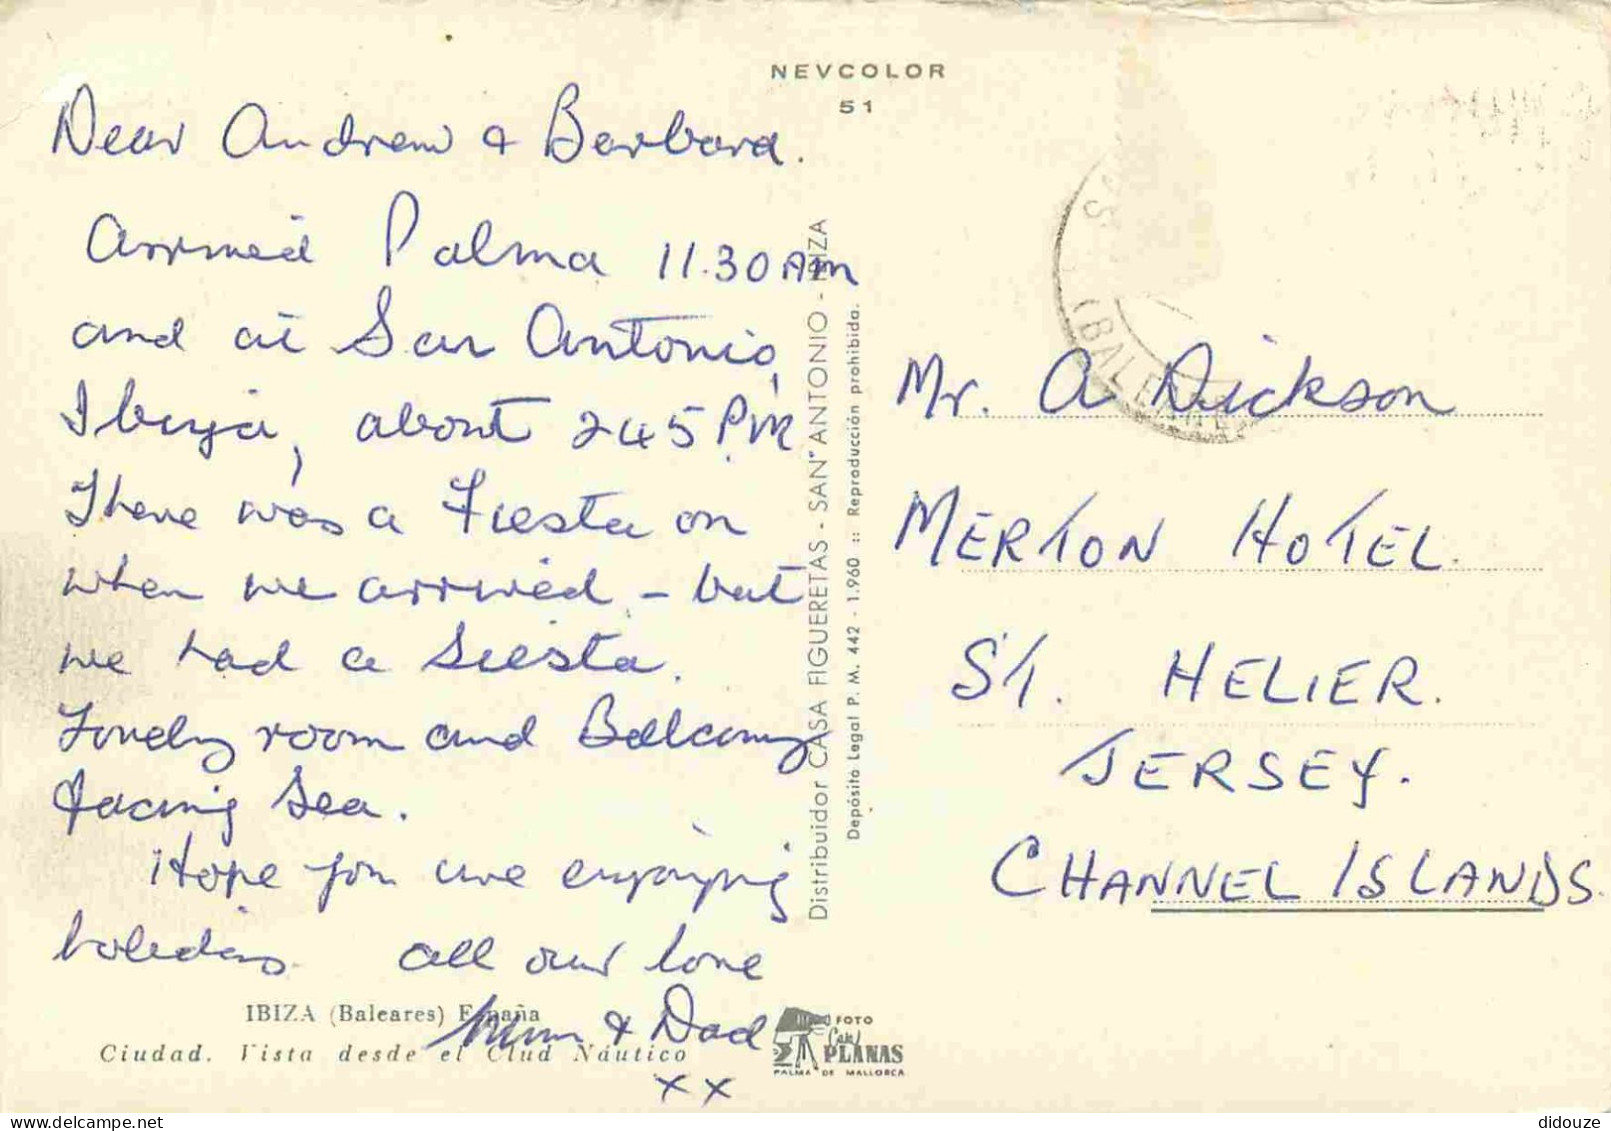 NEVCOLOR
51
Dear Andrew & Barbara.
Arrived Palma 11.30 AM
and at San Antonio,
Ibiza, about 245 P.M
There was a Fiesta on
when we arrived - but
we had a Siesta.
Lovely room and Balcony
facing Sea.
Hope you are enjoying
holidays. all our love
Mum & Dad
xx
IBIZA (Baleares) España
Ciudad. Vista desde el Clud Náutico
Distribuidor CASA FIGUERETAS - SAN ANTONIO - IBIZA
Depósito Legal P. M. 442 - 1.960 :: Reproducción prohibida.
FOTO
Casa
PLANAS
PALMA DE MALLORCA
(BALEARES)
Mr. A Dickson
MERTON HOTEL.
ST. HELIER.
JERSEY.
CHANNEL ISLANDS.
didouze